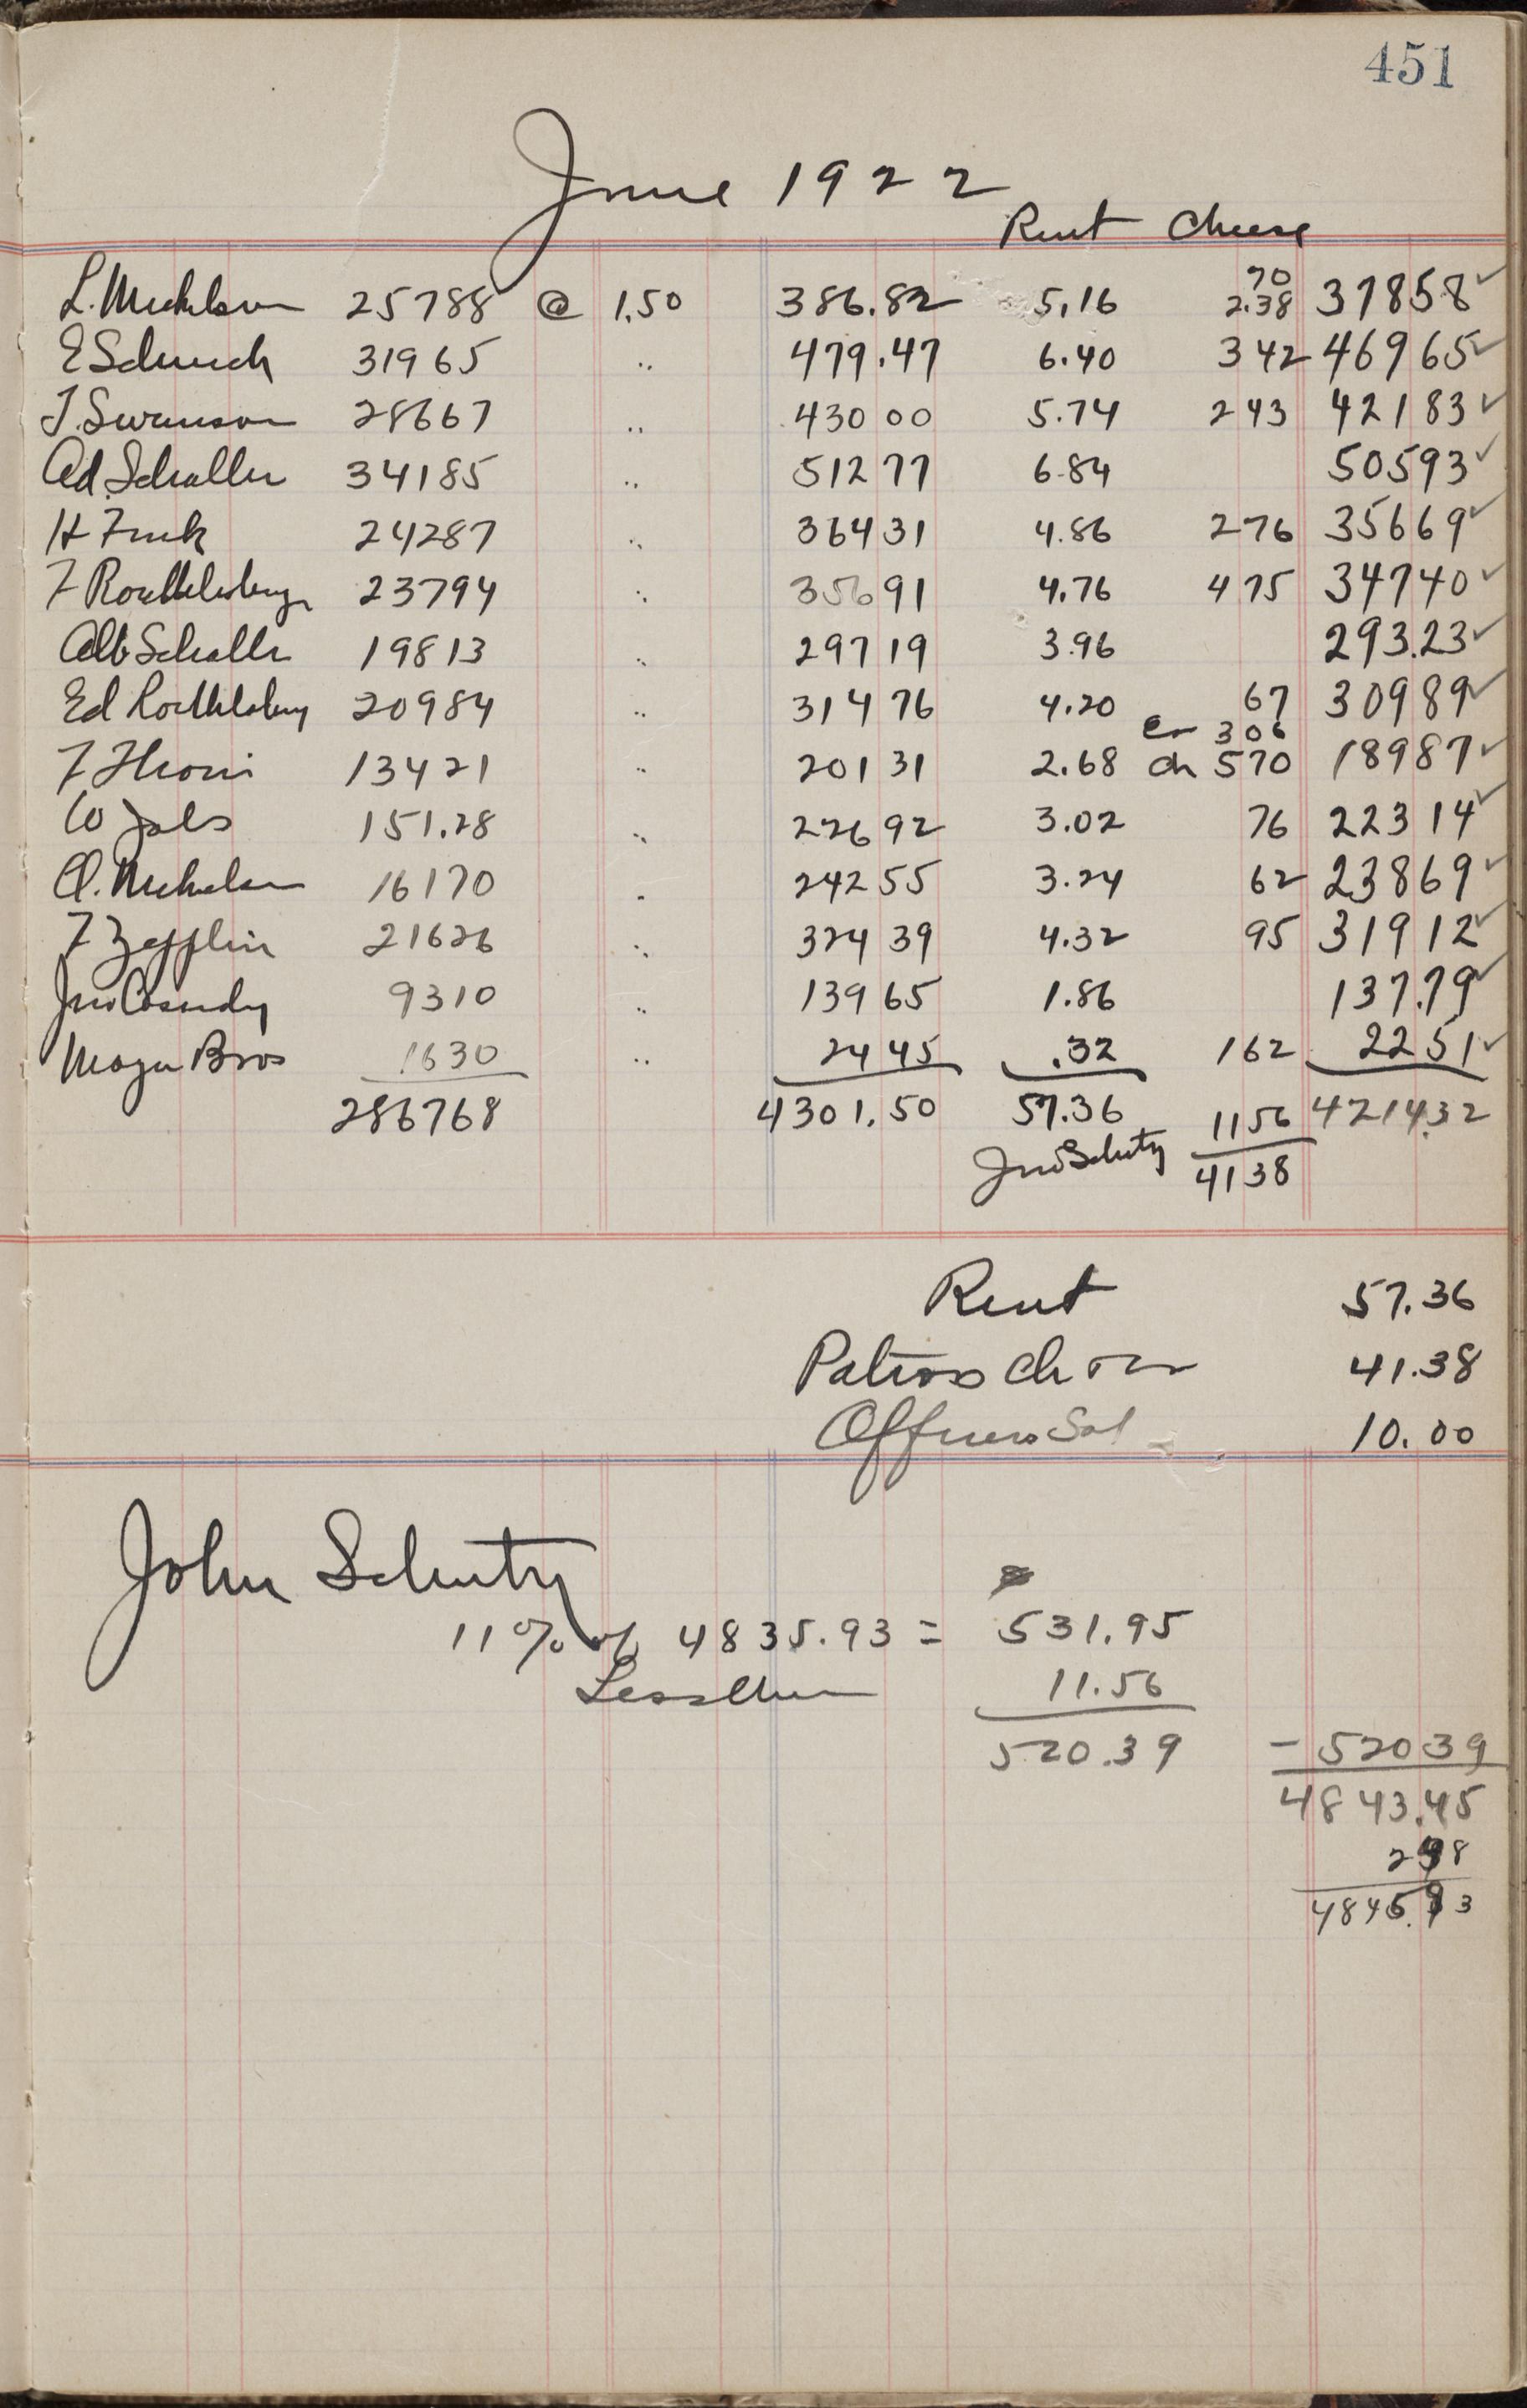 451
June 1922
Rent Cheese
70
L. Michelson 25788 @ 1.50 386.82 5.16 2.38 37858 ✓
E Schurch 31965 .. 479.47 6.40 342 46965 ✓
J. Swanson 28667 .. 430 00 5.74 243 42183 ✓
Ad. Schaller 34185 .. 512 77 6.84 50593 ✓
H Funk 24287 .. 364 31 4.86 276 35669 ✓
F Roethlisberger 23794 .. 356 91 4.76 475 34740 ✓
Alb Schaller 19813 .. 297 19 3.96 293.23 ✓
Ed Roethlisberg 20984 .. 314 76 4.20 67 30989 ✓
306
F 13421 .. 201 31 2.68 Ch 570 18987 ✓
W 151.28 .. 226 92 3.02 76 22314 ✓
A. Michelson 16170 .. 242 55 3.24 62 23869 ✓
F Zepplin 21626 .. 324 39 4.32 95 31912 ✓
Jno Casndy 9310 .. 139 65 1.86 137.79 ✓
Bros 1630 .. 24 45 .32 162 22 51 ✓
286768 4301.50 57.36 1156 4214.32
Jno Schutz 4138
Rent 57.36
Patrons Ch 41.38
Officers Sal 10.00
John Schutz
11% of 4835.93 = 531.95
Less Chee 11.56
520.39 - 520 39
4843.45
2 98
4845.93